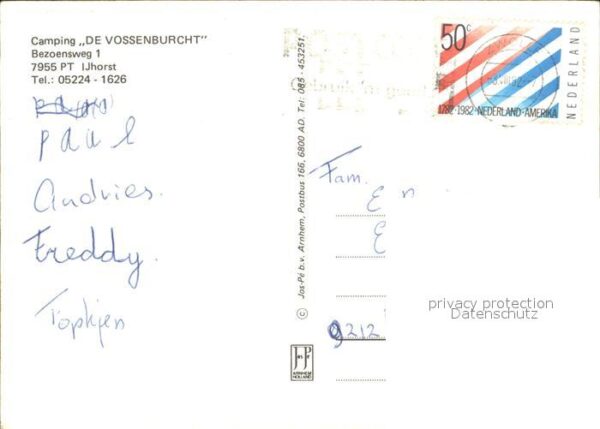 Camping „DE VOSSENBURCHT"
Bezoensweg 1
7955 PT IJhorst
Tel.: 05224 - 1626
paul
Andries.
Freddy.
Fam.
E n
E
9212
© Jos-Pé b.v. Arnhem, Postbus 166, 6800 AD. Tel: 085 - 453251.
JosPé
ARNHEM
HOLLAND
50c
NEDERLAND
1782-1982 NEDERLAND-AMERIKA
privacy protection
Datenschutz